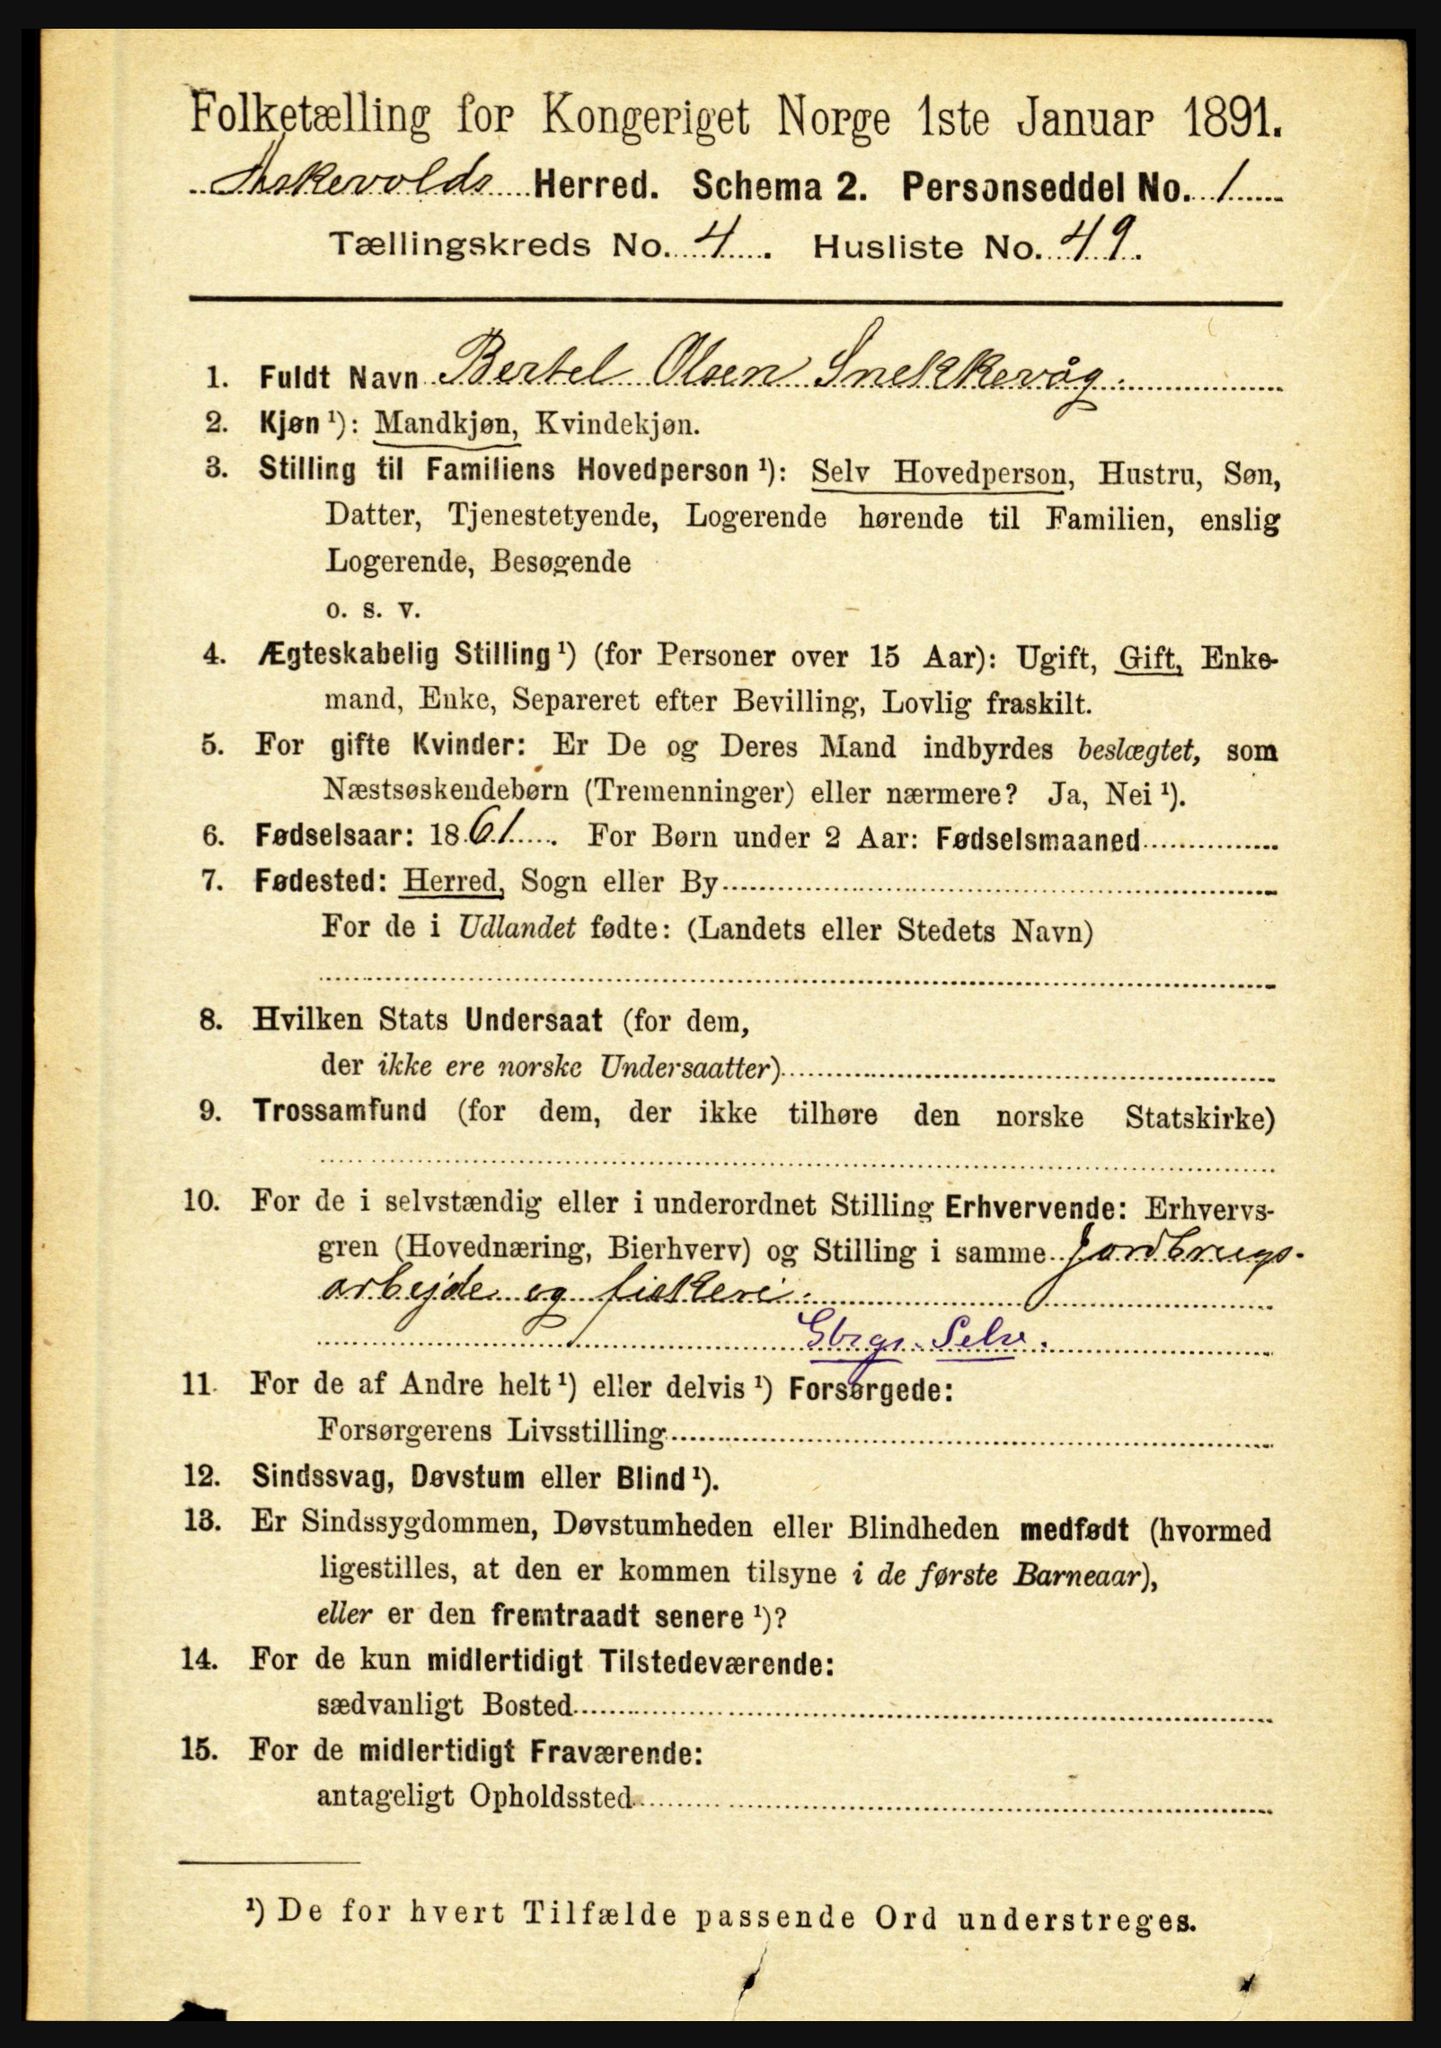 Folketælling for Kongeriget Norge 1ste Januar 1891.
Askevolds Herred. Schema 2. Personseddel No. 1
Tællingskreds No. 4. Husliste No. 49.
1. Fuldt Navn Bertel Olsen Snekkevåg.
2. Kjøn¹): Mandkjøn, Kvindekjøn.
3. Stilling til Familiens Hovedperson¹): Selv Hovedperson, Hustru, Søn,
Datter, Tjenestetyende, Logerende hørende til Familien, enslig
Logerende, Besøgende
o. s. v.
4. Ægteskabelig Stilling¹) (for Personer over 15 Aar): Ugift, Gift, Enke-
mand, Enke, Separeret efter Bevilling, Lovlig fraskilt.
5. For gifte Kvinder: Er De og Deres Mand indbyrdes beslægtet, som
Næstsøskendebørn (Tremenninger) eller nærmere? Ja, Nei¹).
6. Fødselsaar: 1861. For Børn under 2 Aar: Fødselsmaaned
7. Fødested: Herred, Sogn eller By
For de i Udlandet fødte: (Landets eller Stedets Navn)
8. Hvilken Stats Undersaat (for dem,
der ikke ere norske Undersaatter)
9. Trossamfund (for dem, der ikke tilhøre den norske Statskirke)
10. For de i selvstændig eller i underordnet Stilling Erhvervende: Erhvervs-
gren (Hovednæring, Bierhverv) og Stilling i samme Jordbrugs-
arbejde og fiskeri.
Gbrgr. Selv.
11. For de af Andre helt¹) eller delvis¹) Forsørgede:
Forsørgerens Livsstilling
12. Sindssvag, Døvstum eller Blind¹).
13. Er Sindssygdommen, Døvstumheden eller Blindheden medfødt (hvormed
ligestilles, at den er kommen tilsyne i de første Barneaar),
eller er den fremtraadt senere¹)?
14. For de kun midlertidigt Tilstedeværende:
sædvanligt Bosted
15. For de midlertidigt Fraværende:
antageligt Opholdssted
¹) De for hvert Tilfælde passende Ord understreges.